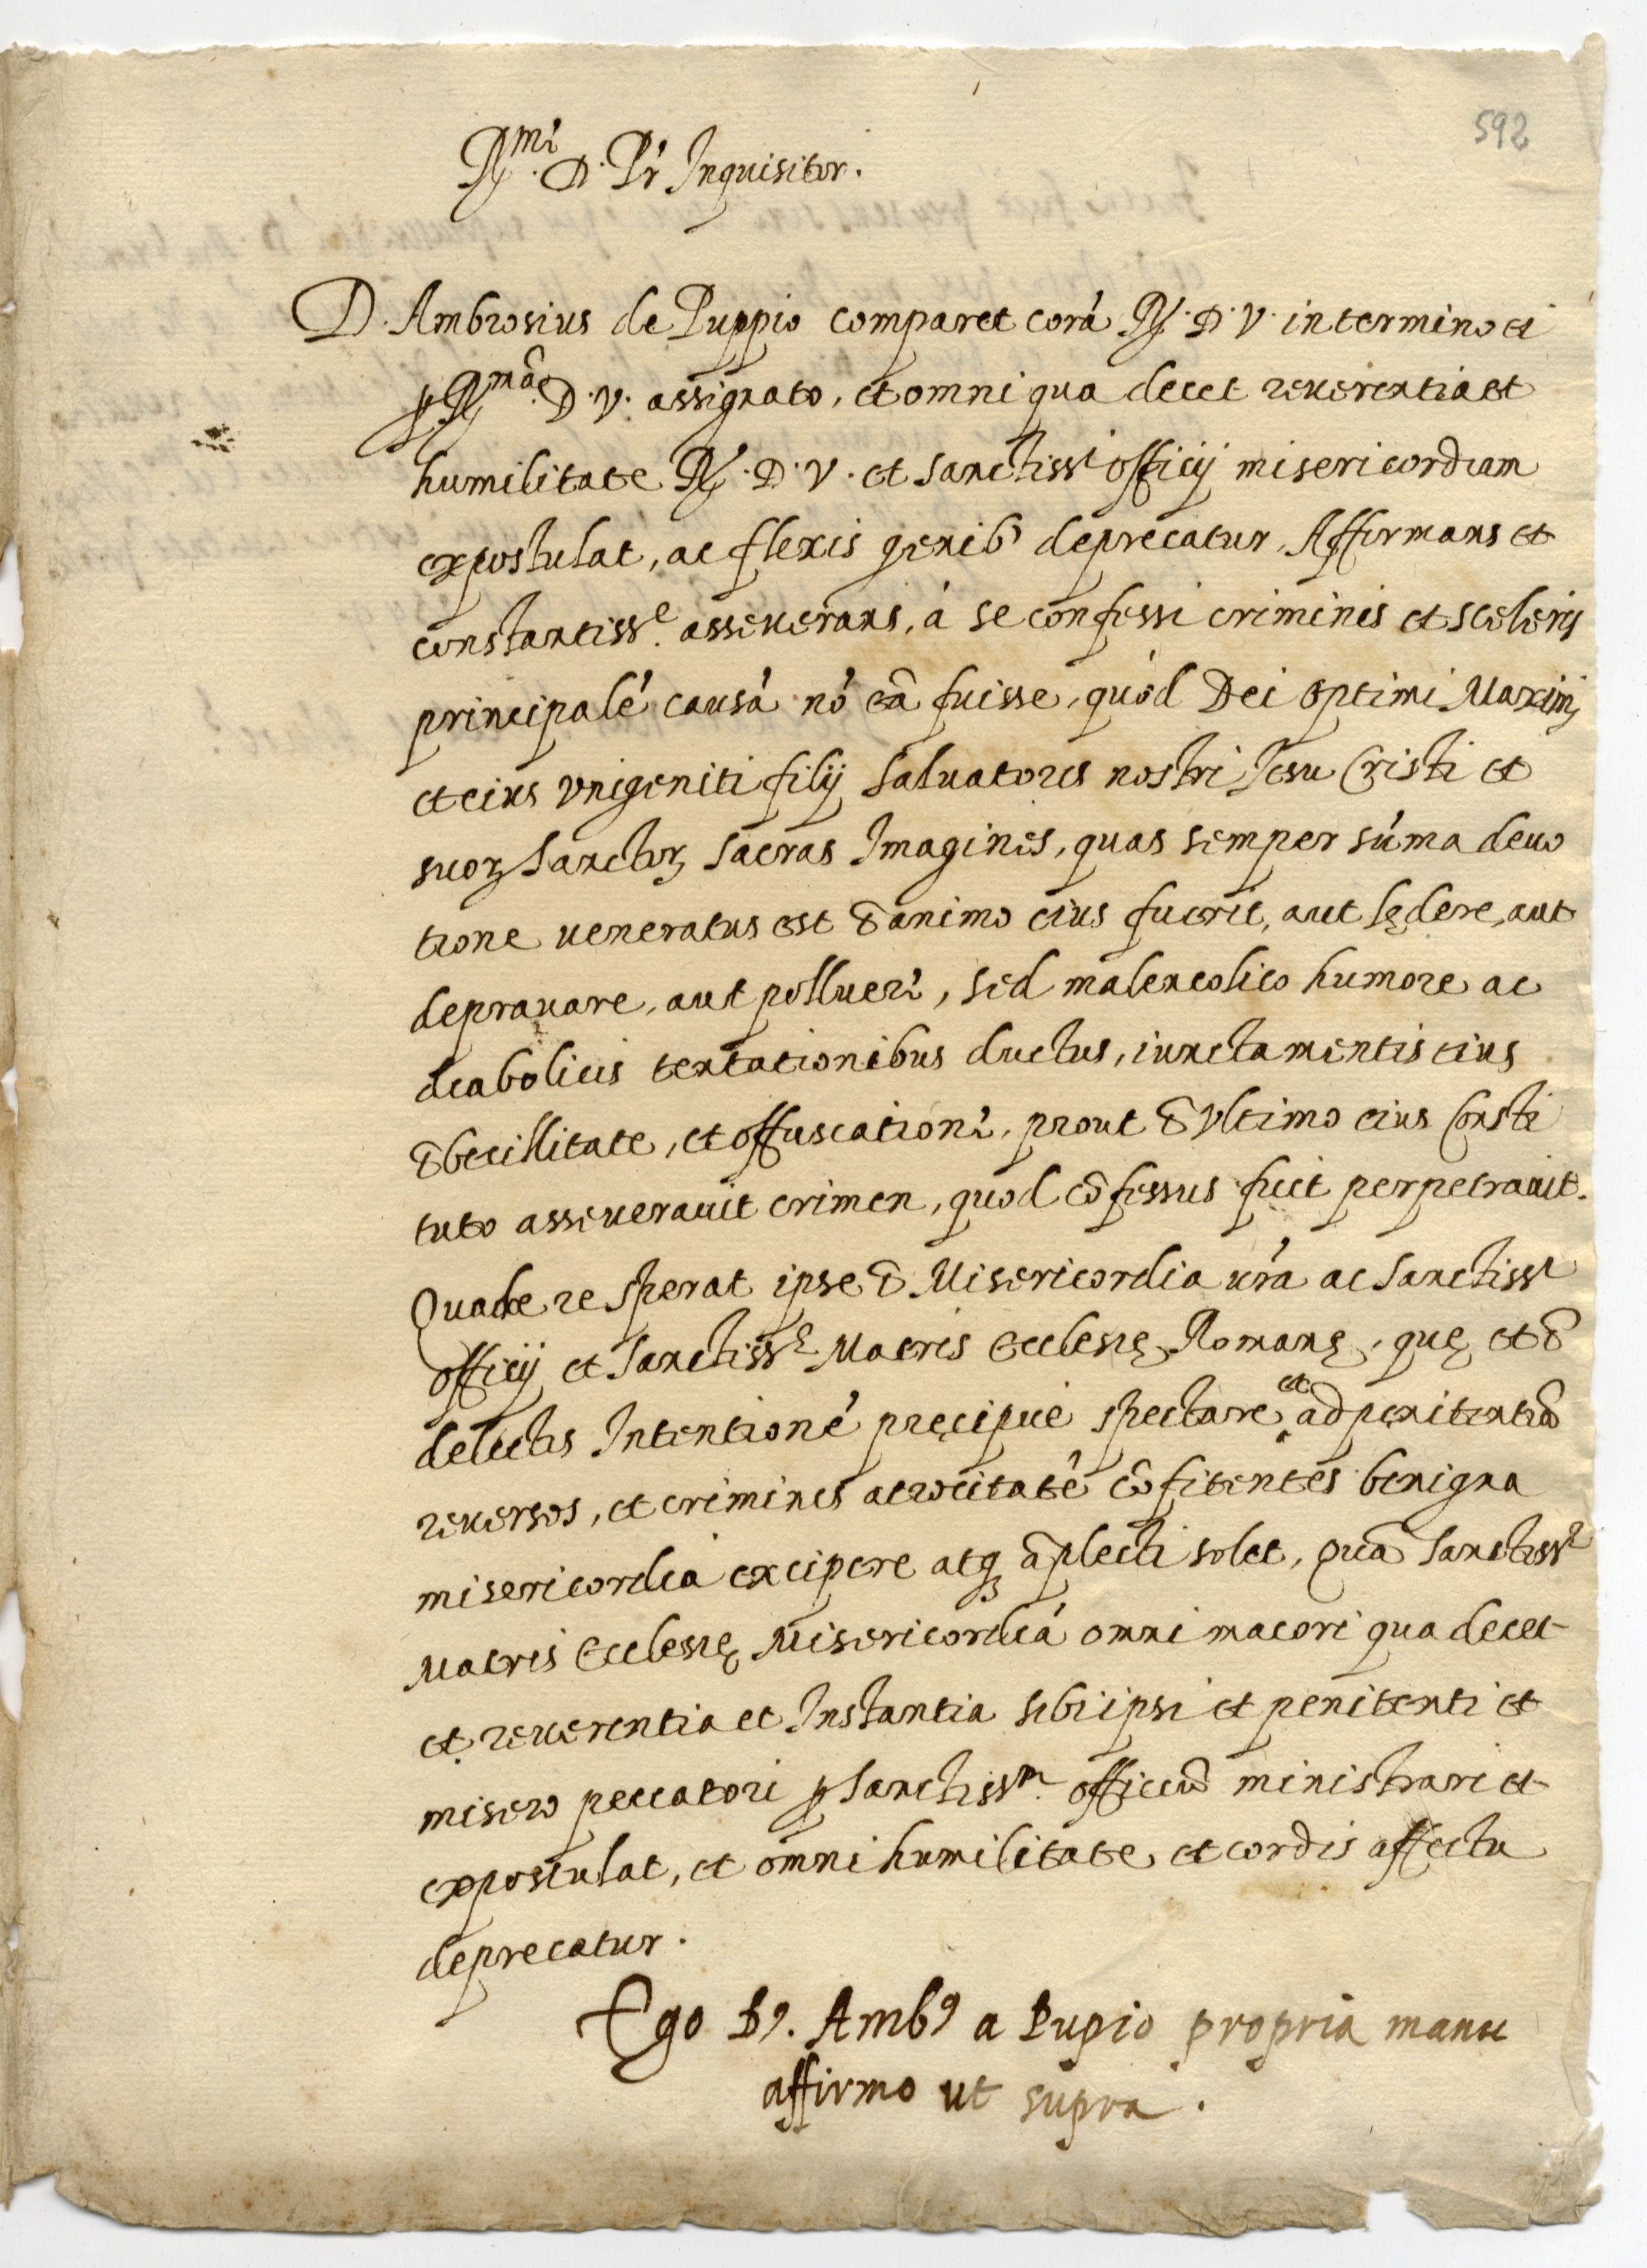 592
R.mi D. Pr Inquisitor.
D. Ambrosius de Puppio comparet corā R. D. V. in termino ei
ꝑ R.mā D. V. assignato, et omni qua decet reuerentia et
humilitate R. D. V. et sanctissi officij misericordiam
expostulat, ac flexis genib' deprecatur. Affirmans et
constantisse. asseuerans, à se confessi criminis et sceleris
principalē causā nō eā fuisse, quòd Dei optimi Maximi
et eius vnigeniti filij saluatoris nostri Iesu Cristi et
suoꝝ sanctoꝝ sacras Imagines, quas semper sūma deuo
tione ueneratus est ī animo eius fuerit, aut lędere, aut
deprauare, aut polluere, sed malencolico humore ac
diabolicis tentationibus ductus, iuncta mentis eius
ībecillitate, et offuscatione, prout ī Vltimo eius Consti
tuto asseuerauit crimen, quod cōfessus fuit perpetrauit.
Quade re sperat ipse ī Misericordia urā ac sanctissi
officij et sanctisse Matris Ecclesię Romanę, quę et ī
delictis Intentionē pręcipuè spectare et ad penitentiā
reuersos, et criminis atrocitatē cōfitentes benigna
misericordia excipere atqꝫ āplecti solet, Quā sanctisse
Matris Ecclesię Misericordiā omni maiori qua decet
et reuerentia et Instantia sibi ipsi et penitenti et
misero peccatori ꝑ sanctissm. officiū ministrari et
expostulat, et omni humilitate, et cordis affectu
deprecatur.
Ego D9. Amb9 a Pupio propria manu
affirmo ut supra.